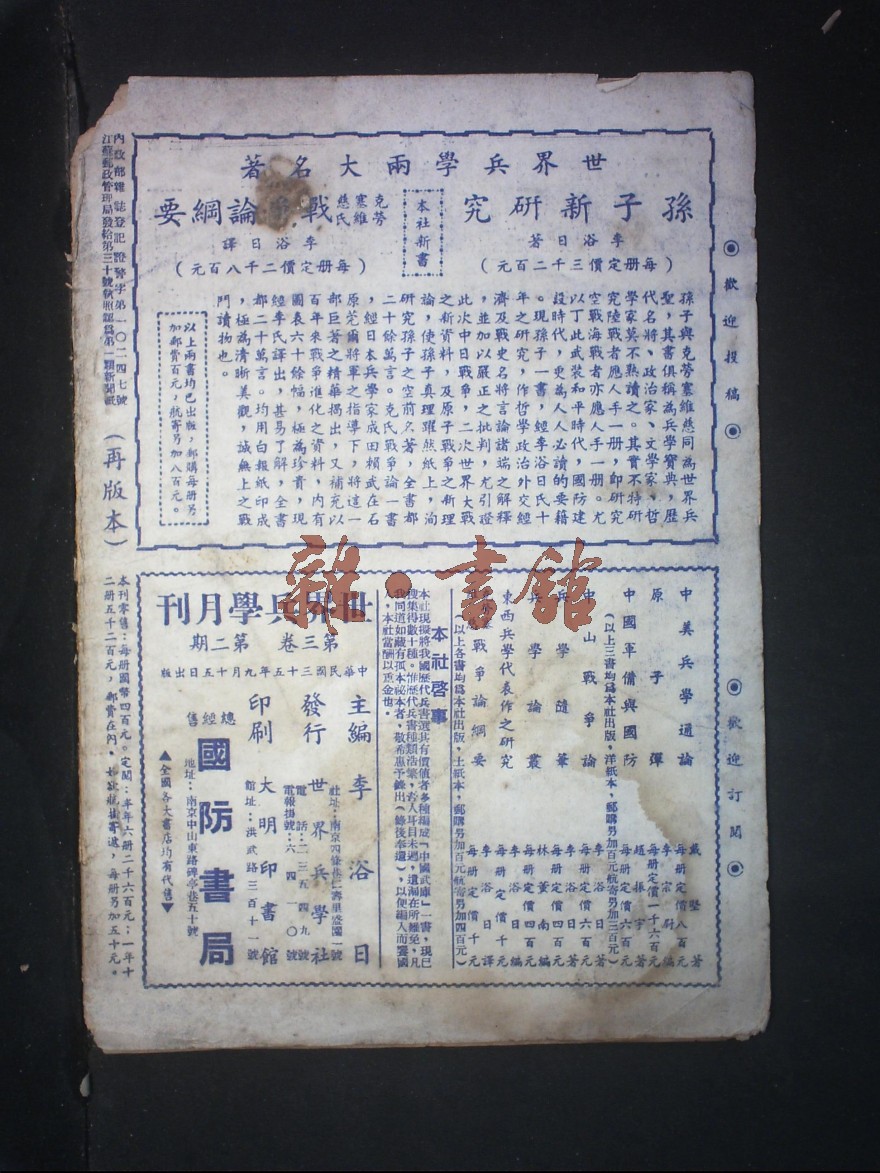 ◉歡迎投稿◉
◉歡迎訂閱◉
世界兵學兩大名著
孫子新研究
李浴日著
(每册定價三千二百元)
本社新書
克勞塞維慈氏戰爭論綱要
李浴日譯
(每册定價二千八百元)
孫子與克勞塞維慈同為世界兵
聖，其書俱稱為兵學寶典，歷
代名將、政治家、文學家、哲
學家莫不熟讀之。其實不特研
究陸戰者應人手一册，卽研究
空戰海戰者亦應人手一册。尤
以丁此武裝和平時代，國防建
設時代，更為人人必讀的要籍
。現孫子一書，經李浴日氏十
年之研究，作哲學政治外交經
濟及戰史名將言論諸端之解釋
，並加以嚴正之批判，尤引證
此次中日戰爭，二次世界大戰
之新資料，及原子戰爭之新理
論，使孫子真理躍然紙上，洵
研究孫子之空前名著，全書都
二十餘萬言。克氏戰爭論一書
，經日本兵學家成田賴武在石
原莞爾將軍之指導下，將這一
部巨著之精華揭出，又補充以
百年來戰爭進化之資料，內有
圖表六十餘幅，極為珍貴，現
經李氏譯出，甚易了解，全書
都二十萬言。均用白報紙印成
，極為清晰美觀，誠無上之戰
鬥讀物也。
以上兩書均已出版，郵購每册另
加郵費百元，航寄另加八百元。
中美兵學通論 戴堅著 每册定價八百元
原子彈 李宗尉編 每册定價一千六百元
中國軍備與國防 趙振宇著 每册定價六百元
(以上三書均為本社出版，洋紙本，郵購另加百元航寄另加三百元)
中山戰爭論 李浴日著 每册定價六百元
兵學隨筆 李浴日著 每册定價四百元
兵學論叢 林薰南編 每册定價四百元
東西兵學代表作之研究 李浴日編 每册定價千元
戰爭論綱要 李浴日譯 每册定價千元
(以上各書均為本社出版，土紙本，郵購另加百元航寄另加四百元)
本社啓事
本社現擬將我國歷代兵書選其有價值者多種編成「中國武庫」一書，現已
搜集得數十種。惟歷代兵書種類浩繁，吾人耳目未週，遺漏在所難免，凡
我同道如藏有孤本祕本者，敬希惠予錄出(錄後奉還)，以便編入而饗國
人，本社當酬以重金也。
世界兵學月刊
第三卷 第二期
中華民國三十五年九月十五日出版
主編 李浴日
發行 世界兵學社
社址：南京四條巷仁壽里
電話：二三五四九號
電報掛號：六四一〇號
印刷 大明印書館
館址：洪武路三百十一號
總經售 國防書局
地址：南京中山東路碑亭巷五十號
▲全國各大書店均有代售▼
內政部雜誌登記證警字第一〇二四七號
江蘇郵政管理局發給第三十號執照認為第一類新聞紙
(再版本)
本刊零售：每册國幣四百元。定閱：半年六册二千六百元；一年十
二册五千二百元，郵費在內，如欲航掛寄遞，每册另加五十元。
雜·書館